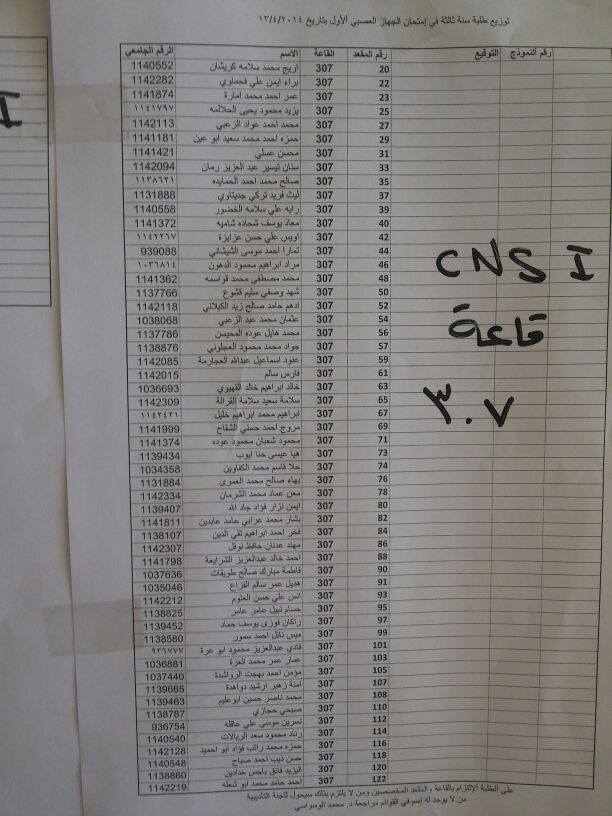 توزيع طلبة سنة ثالثة في إمتحان الجهاز العصبي الأول بتاريخ ١٣/٤/٢٠١٤
الرقم الجامعي الاسم القاعة رقم المقعد التوقيع رقم النموذج
1140552 اريج محمد سلامه كريشان 307 20
1142282 براء ايمن علي فحماوي 307 22
1141874 عمر احمد محمد امارة 307 23
١١٤١٧٩٧ يزيد محمود يحيى الحلالمه 307 25
1142113 محمد احمد عواد الزعبي 307 27
1141181 حمزه احمد محمد سعيد ابو عين 307 29
1141421 محسن عسلي 307 31
1142094 سنان تيسير عبد العزيز رمان 307 33
١١٣٨٦٢١ صالح محمد احمد الحمايده 307 35
1131888 ليث فريد تركي جديتاوي 307 37
1140558 رايه علي سلامه الخضور 307 39
1141372 معاذ يوسف شحاده شاميه 307 40
١١٤٢٢٦٧ اويس علي حسن عزايزة 307 42
939088 تمارا احمد موسى الشيشاني 307 44
١٠٣٦٨١٤ مراد ابراهيم محمود الدهون 307 46
1141362 محمد مصطفى محمد قواسمه 307 48
1137766 شهد وصفي سليم قشوع 307 50
1142118 ادهم حامد صالح زيد الكيلاني 307 52
1038068 عثمان محمد عبد الزعبي 307 54
1137786 محمد هايل عوده المحيسن 307 56
1138876 جواد محمد محمود العجلوني 307 57
1142085 عنود اسماعيل عبدالله العجارمة 307 59
1142015 فارس سالم 307 61
1036693 خالد ابراهيم خالد القهيوي 307 63
1142309 سلامة سعيد سلامة القرالة 307 65
١١٤٢٤٢١ ابراهيم محمد ابراهيم خليل 307 67
1141999 مروج احمد حسني الشقاح 307 69
1141374 محمود شعبان محمود عوده 307 71
1139434 هيا عيسى حنا ايوب 307 73
1034358 حلا قاسم محمد الكفاوين 307 74
1131884 بهاء صالح محمد العمرى 307 76
1142334 معن عماد محمد الشرمان 307 78
1139407 ايمن نزار فؤاد جاد الله 307 80
1141811 بشار محمد عرابي حامد عابدين 307 82
1138107 فخر احمد ابراهيم تقي الدين 307 84
1142307 مهند عدنان حافظ نوفل 307 86
1141798 احمد خالد عبدالعزيز الشرايعة 307 88
1037636 فاطمة مبارك صالح طويقات 307 90
1035046 هديل عمر سالم القزاع 307 91
1142212 انس علي حسن العتوم 307 93
1138825 حسام نبيل عامر عامر 307 95
1139452 راكان فوزى يوسف حماد 307 97
1138580 ميس نائل احمد سمور 307 99
٩٣٦٧٧٧ فادي عبدالعزيز محمود ابو عرة 307 101
1036881 عمار عمر محمد العزة 307 103
1037440 مؤمن احمد بهجت الرواشدة 307 105
1139665 امنة زهير ارشيد دواهدة 307 107
1139463 محمد ناصر حسين ابوعليم 307 108
1138787 صبحي حجازي 307 110
936754 نسرين موسى علي عاقله 307 112
1140540 رناد محمود سعد الريالات 307 114
1142128 حمزه محمد راتب فؤاد ابو احميد 307 116
1140548 حسن ذيب احمد صباح 307 118
1138860 اليزيد فائق باجس حدادين 307 120
1142219 احمد حامد محمد ابو شعله 307 122
على الطلبة الإلتزام بالقاعة والمقعد المخصصين ومن لا يلتزم بذلك سيحول للجنة التأديبية
من لا يوجد له إسم في القوائم مراجعة د. محمد الوسواسي
CNS I
قاعة
٣٠٧
I